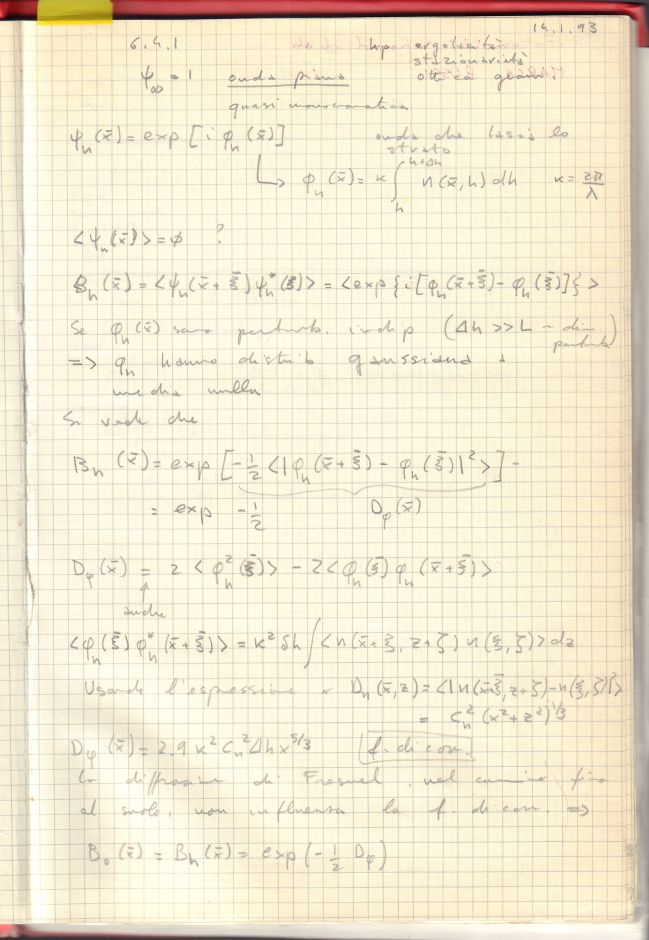 14.1.93
6.4.1 hp ergodicità
stazionarietà
ψ∞ = 1 onda piana ottica geom.
quasi monocromatica
ψₕ(x̄) = exp [i φₕ(x̄)] onda che lascia lo strato
↳ φₕ(x̄) = κ ∫ₕ^(h+Δh) n(x̄,h) dh κ = 2π/λ
<ψₕ(x̄)> = φ ?
Bₕ(x̄) = <ψₕ(x̄+ξ̄) ψₕ*(ξ̄)> = <exp{i[φₕ(x̄+ξ̄) - φₕ(ξ̄)]}>
Se φₕ(x̄) sono perturb. indip (Δh >> L ~ dim perturb)
=> φₕ hanno distrib gaussiana a
media nulla
Si vede che
Bₕ(x̄) = exp [-1/2 <|φₕ(x̄+ξ̄) - φₕ(ξ̄)|²>] =
= exp -1/2 Dφ(x̄)
Dφ(x̄) = 2 <φₕ²(ξ̄)> - 2<φₕ(ξ̄) φₕ(x̄+ξ̄)>
↑
anche
<φₕ(ξ̄) φₕ*(x̄+ξ̄)> = κ² δh ∫ <n(x̄+ξ̄, z+ζ) n(ξ̄,ζ)> dz
Usando l'espressione x Dₙ(x̄,z) = <|n(x̄+ξ̄, z+ζ) - n(ξ̄,ζ)|²>
= Cₙ² (x²+z²)^1/3
Dφ(x̄) = 2.9 κ² Cₙ² Δh x^5/3 f. di corr.
la diffrazione di Fresnel, nel cammino fino
al suolo, non influenza la f. di corr. =>
B₀(x̄) = Bₕ(x̄) = exp(-1/2 Dφ)